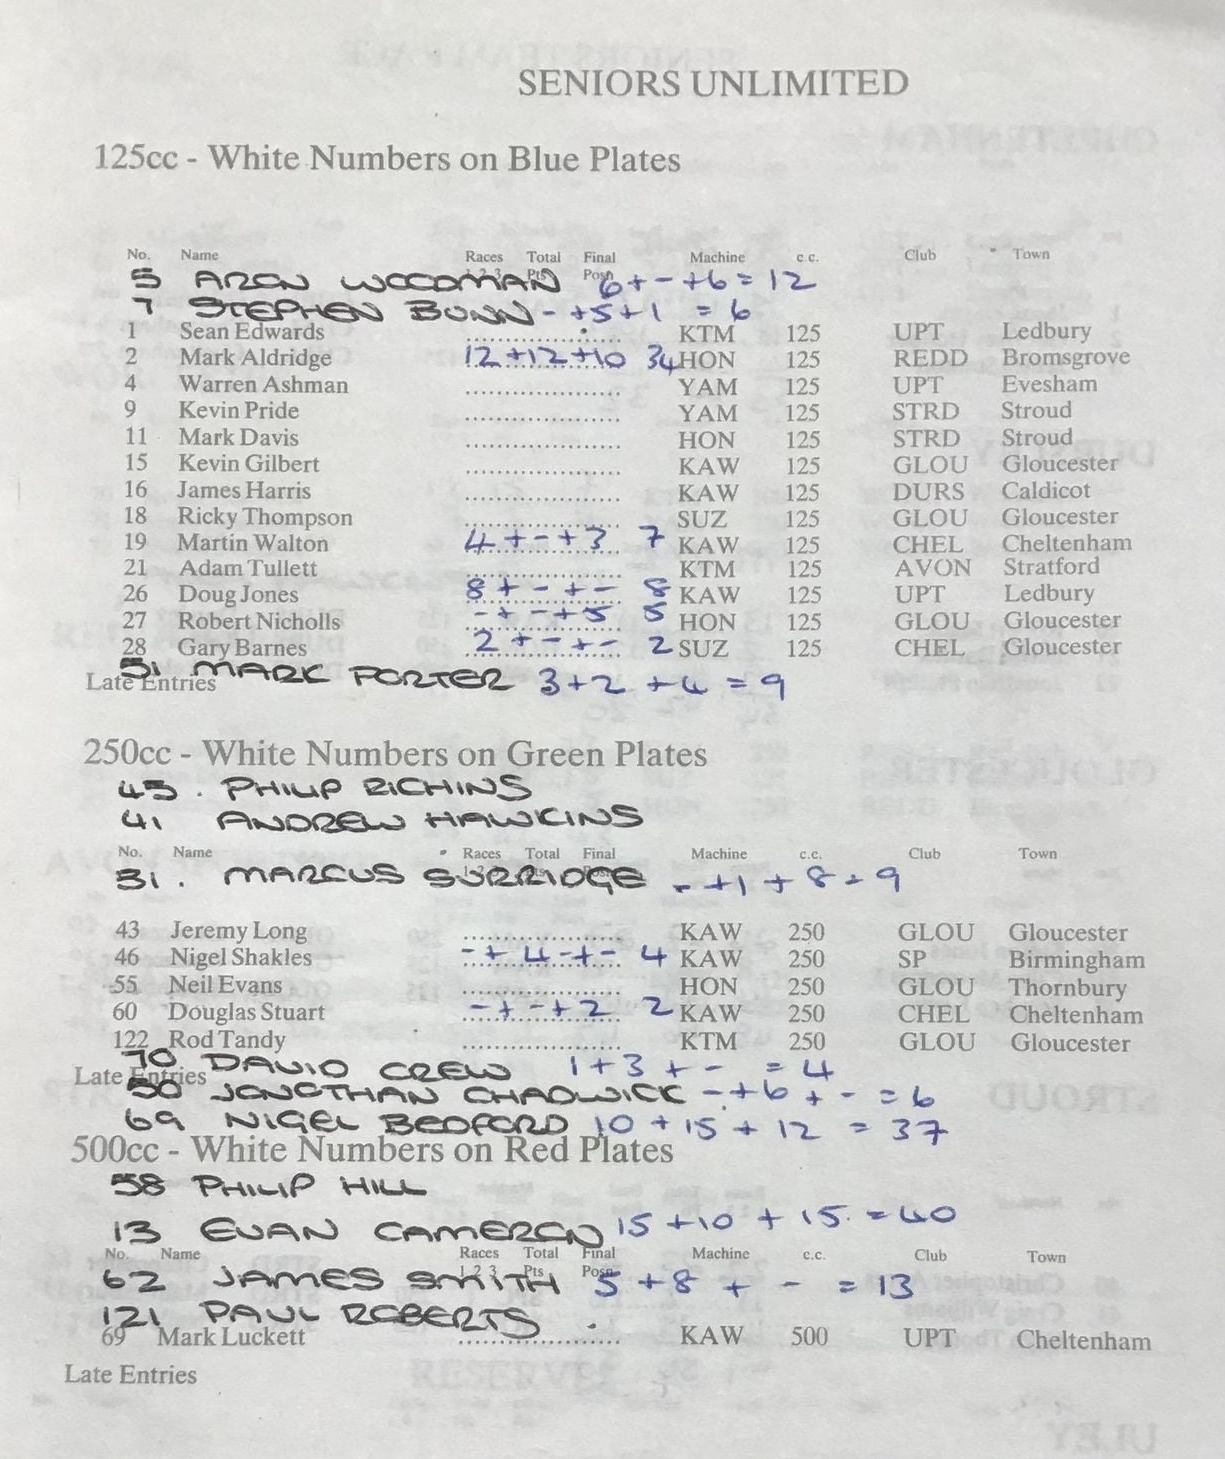 SENIORS UNLIMITED
125cc - White Numbers on Blue Plates
No. Name Races Total Final Machine c.c. Club Town
1 2 3 Pts Posn
5 ARON WOODMAN 6+-+6=12
7 STEPHEN BUNN -+5+1 =6
1 Sean Edwards .................... KTM 125 UPT Ledbury
2 Mark Aldridge 12+12+10 34 HON 125 REDD Bromsgrove
4 Warren Ashman .................... YAM 125 UPT Evesham
9 Kevin Pride .................... YAM 125 STRD Stroud
11 Mark Davis .................... HON 125 STRD Stroud
15 Kevin Gilbert .................... KAW 125 GLOU Gloucester
16 James Harris .................... KAW 125 DURS Caldicot
18 Ricky Thompson .................... SUZ 125 GLOU Gloucester
19 Martin Walton 4+-+3 7 KAW 125 CHEL Cheltenham
21 Adam Tullett .................... KTM 125 AVON Stratford
26 Doug Jones 8+-+- 8 KAW 125 UPT Ledbury
27 Robert Nicholls -+-+5 5 HON 125 GLOU Gloucester
28 Gary Barnes 2+-+- 2 SUZ 125 CHEL Gloucester
51 MARK PORTER 3+2+4=9
Late Entries
250cc - White Numbers on Green Plates
45. PHILIP RICHINS
41 ANDREW HAWKINS
No. Name Races Total Final Machine c.c. Club Town
31. MARCUS SURRIDGE -+1+8=9
43 Jeremy Long .................... KAW 250 GLOU Gloucester
46 Nigel Shakles -+4-+- 4 KAW 250 SP Birmingham
55 Neil Evans .................... HON 250 GLOU Thornbury
60 Douglas Stuart -+-+2 2 KAW 250 CHEL Cheltenham
122 Rod Tandy .................... KTM 250 GLOU Gloucester
70 DAVID CREW 1+3+- =4
Late Entries
50 JONOTHAN CHADWICK -+6+-=6
69 NIGEL BEDFORD 10+15+12 =37
500cc - White Numbers on Red Plates
58 PHILIP HILL
13 EVAN CAMERON 15+10+15.=40
No. Name Races Total Final Machine c.c. Club Town
1 2 3 Pts Posn
62 JAMES SMITH 5+8+- =13
121 PAUL ROBERTS
69 Mark Luckett .................... KAW 500 UPT Cheltenham
Late Entries